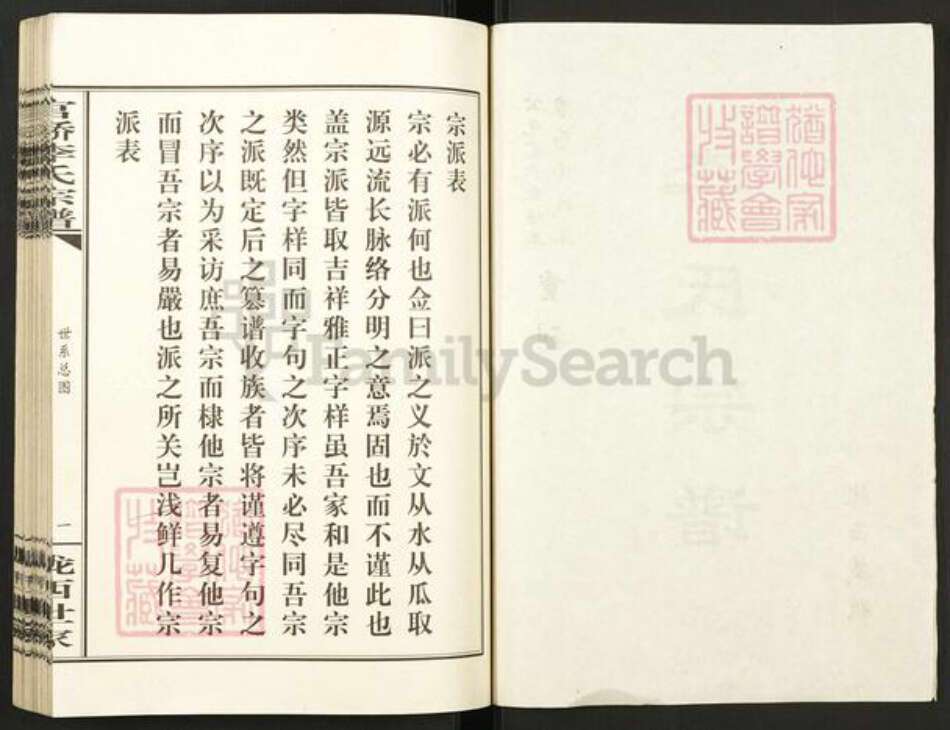 宗派表
宗必有派何也佥曰派之义於文从水从瓜取
源远流长脉络分明之意焉固也而不谨此也
盖宗派皆取吉祥雅正字样虽吾家和是他宗
类然但字样同而字句之次序未必尽同吾宗
之派既定后之篡谱收族者皆将谨遵字句之
次序以为采访庶吾宗而棣他宗者易复他宗
而冒吾宗者易嚴也派之所关岂浅鲜几作宗
派表
官桥李氏宗谱
世系总图
一
陇西世家
猶他家
譜學會
收藏
FamilySearch